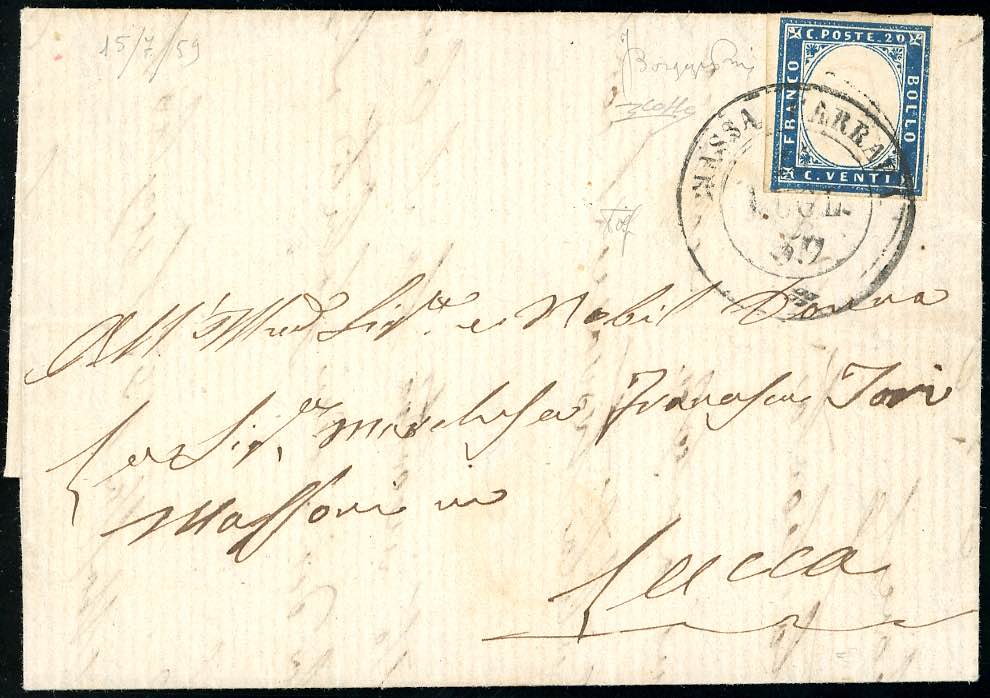 15/7/59
C. POSTE. 20
FRANCO
BOLLO
C. VENTI
MASSA CARRARA
LUGL.
59
All' Illma Sigra e Nobil Donna
La Sigra Marchesa Francesca Tori
Massoni in
Lucca